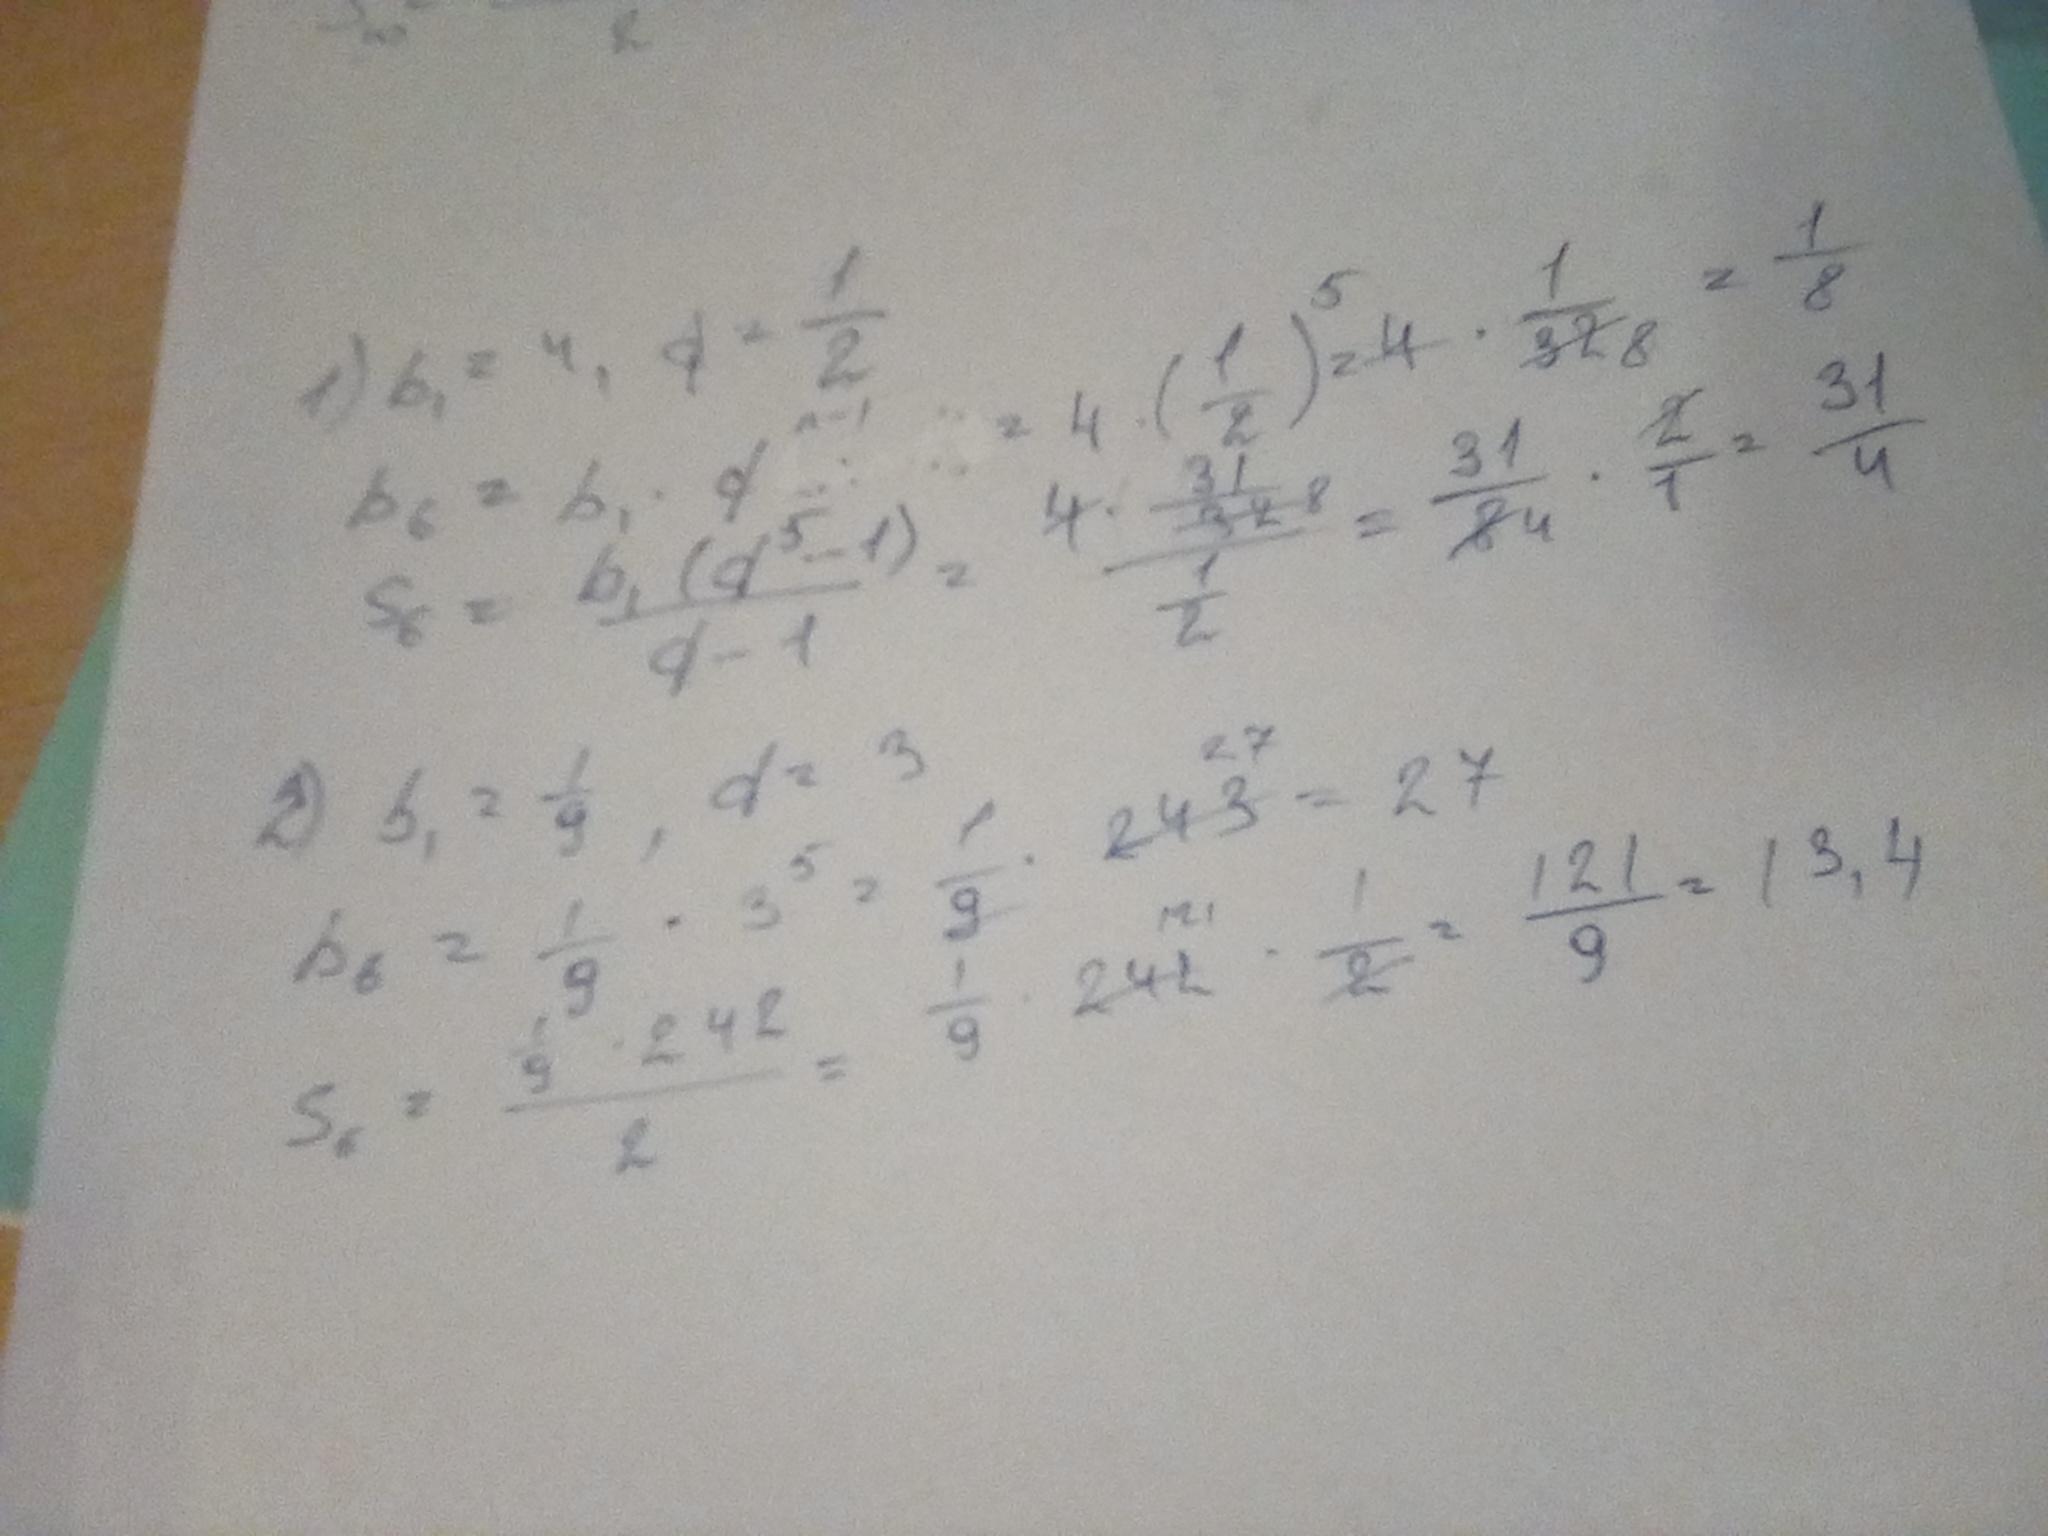 1) b₁ = 4, q = 1/2
b₆ = b₁ · q^(n-1) = 4 · (1/2)^5 = 4 · 1/32 8 = 1/8
S₆ = b₁(q^5 - 1)/(q - 1) = (4 · 31/32 8)/(1/2) = 31/8 4 · 2/1 = 31/4
2) b₁ = 1/9, q = 3
b₆ = 1/9 · 3^5 = 1/9 · 243 27 = 27
S₆ = (1/9 · 242)/2 = 1/9 · 242 121 · 1/2 = 121/9 = 13,4